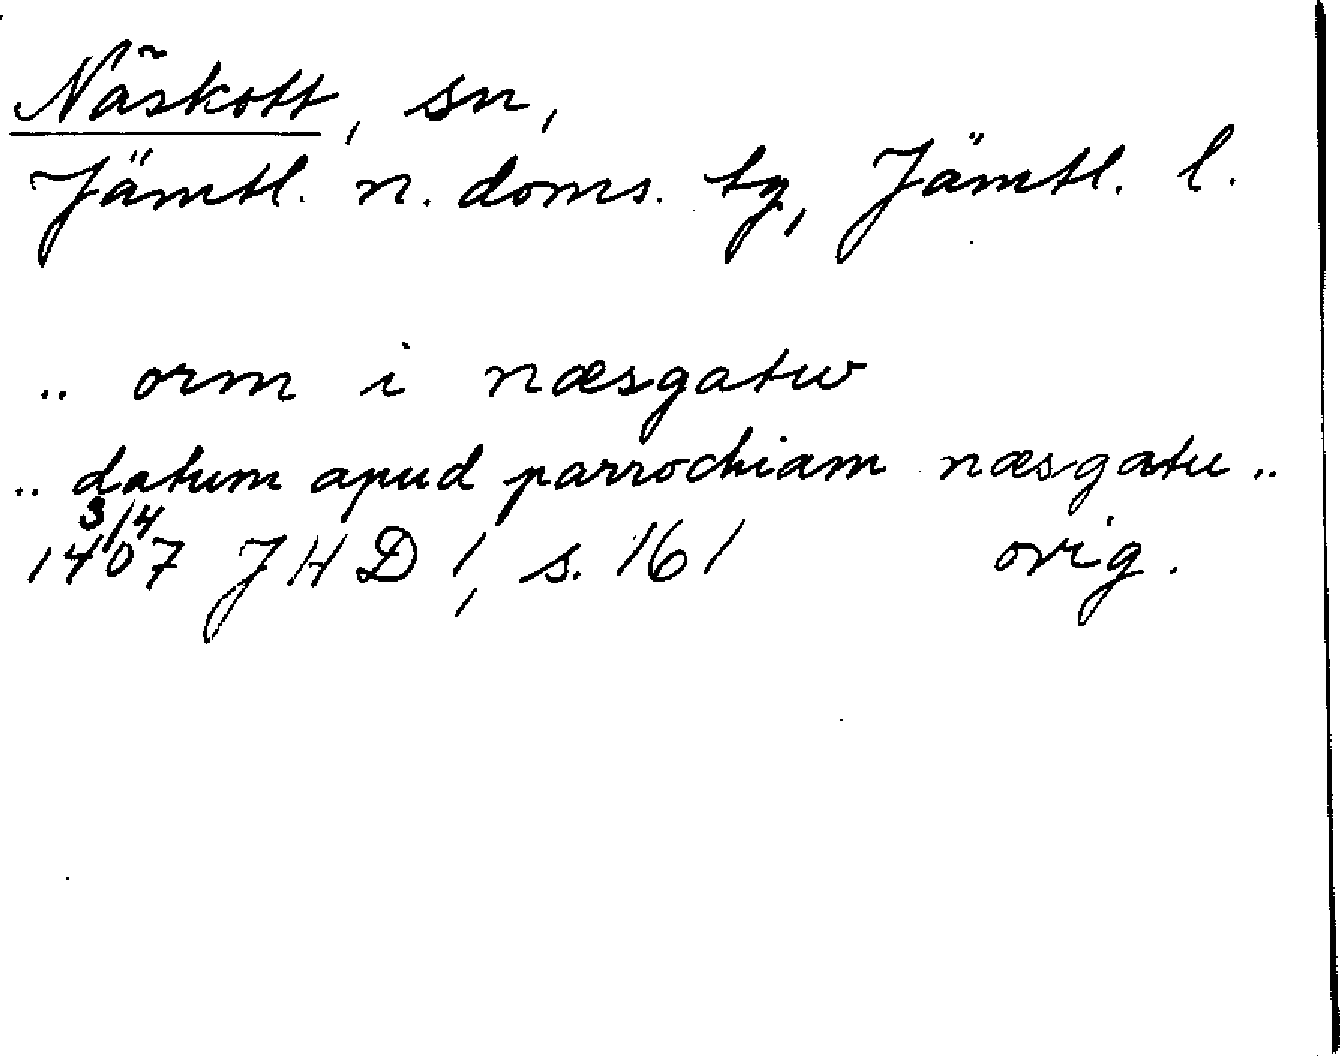 Näskott, sn,
Jämtl. n. doms. tg, Jämtl. l.
.. orm i næsgatw
.. datum apud parrochiam næsgatu ..
3/4
1407 JHD 1, s. 161 orig.